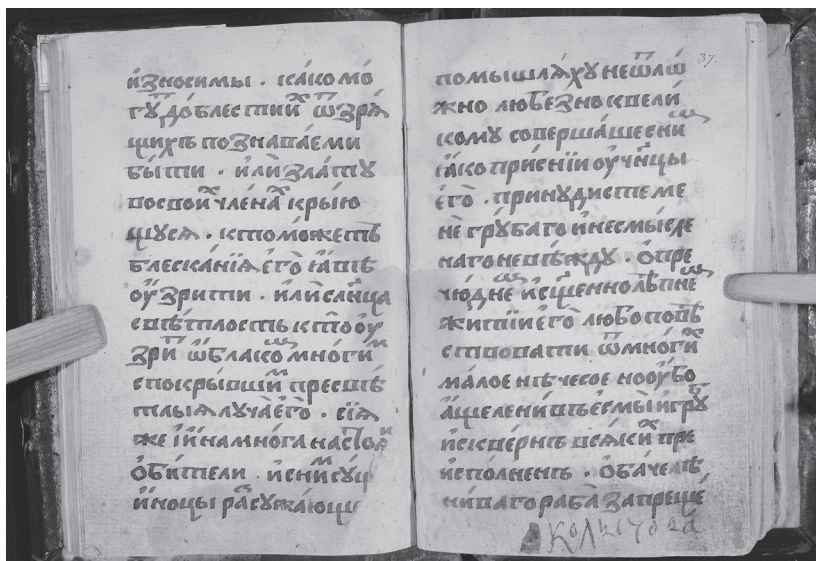 и҆зносимы . ка́ко мо́
гꙋ́ до́блести и҆х ѿ зрѧ́
щихъ познава́еми
бы́ти . и҆лѝ зла́тꙋ
во свои́х чле́на́х кры́ю
щꙋсѧ . кто мо́жетъ
блеска́нїѧ є҆гѡ̀ ꙗ҆вѣ
ᲂу҆зри́ти . и҆лѝ сл҃нца
свѣ́тлость кто̀ ᲂу҆
зри́ ѡ҆блако мно́ги м
с покры́вши м пресвѣ́
тлыѧ лꙋча̀ є҆гѡ̀ . сїѧ
же і҆ и҆на мно́га настоѧ
ѻ҆би́тели . и҆ с ни́ м сꙋщ
и҆́ноцы расꙋжа́юще
37.
помышлѧ́хꙋ не ѿло
жно любе́зно к вели́
комꙋ соверша́ше с ни
ꙗ҆́ко при́снїи ᲂу҆ч҃нцы
є҆гѡ̀ . принꙋ́дисте ме
не грꙋ́баго и҆ несмы́сле
наго невѣ́ждꙋ . ѻ҆ пре
чю́дне и҆ сщ҃еннолѣ́пне
жи́тїи є҆гѡ̀ любопо вѣ́
ствовати ѿ мно́ги х
ма́лое нѣ́чесое но ᲂу҆́бо
а҆́ще лени́въ є҆смы̀ и҆ грꙋ́б
и҆ скве́рнъ всѧ́ки х пре
и҆спо́лненъ . ѻ҆ба́че лѣ
ни́ваго раба̀ запреще́